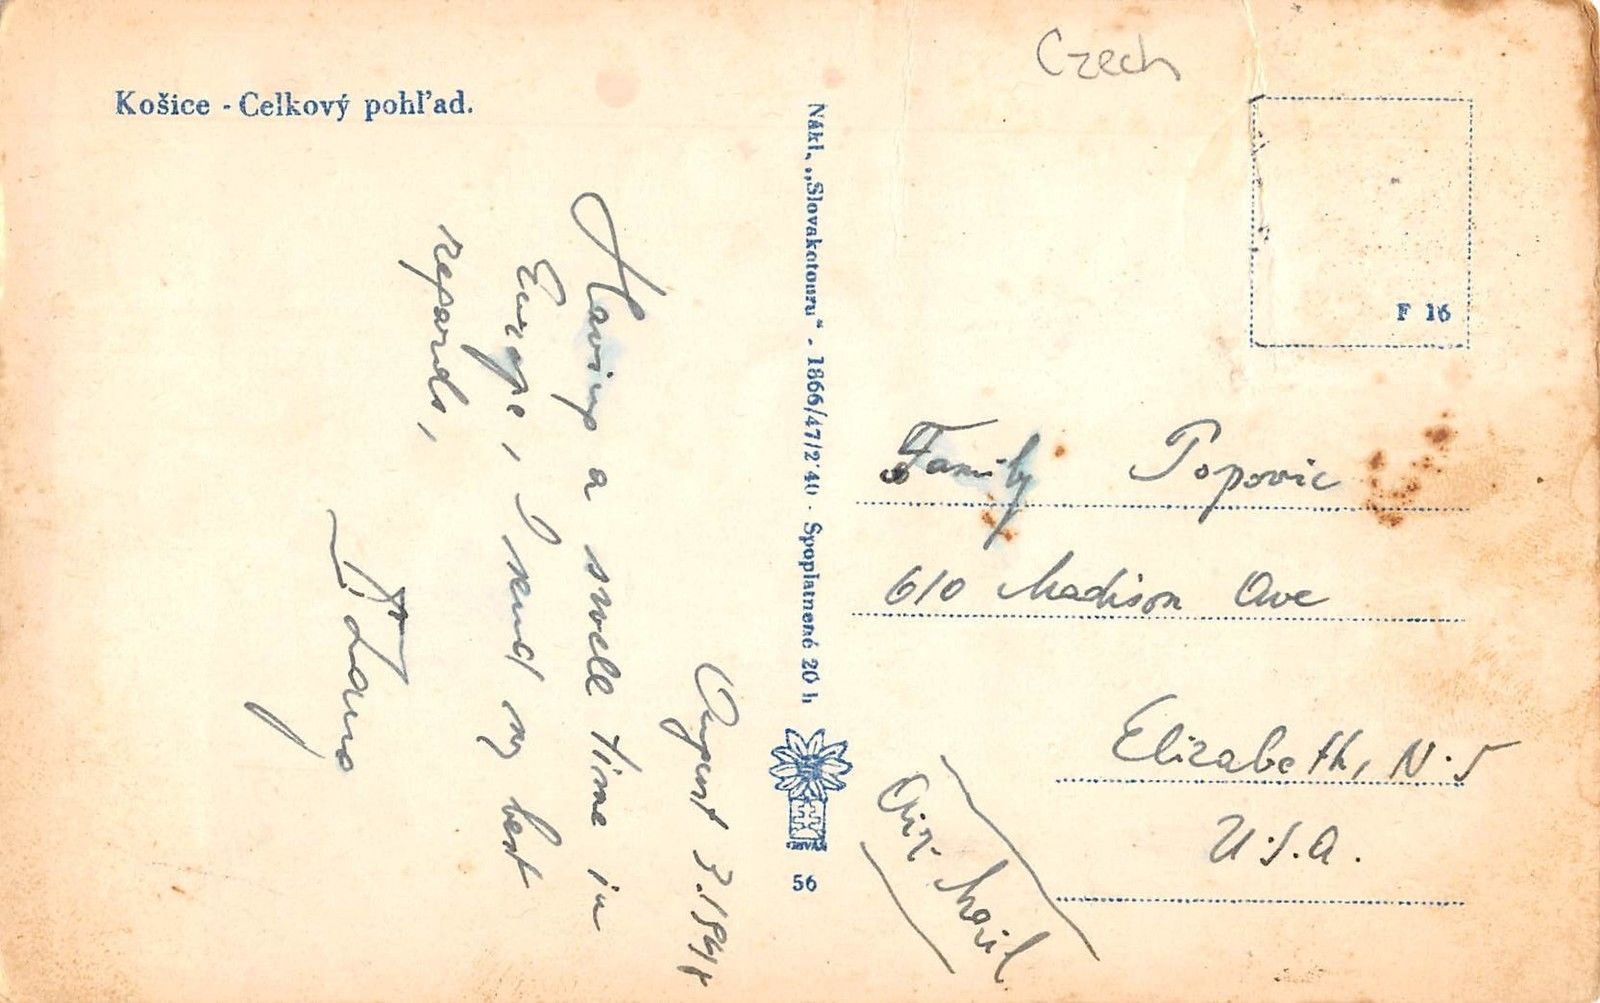 Czech
Košice - Celkový pohľad.
F 16
August 3.1948
Having a swell time in
Europe, I send my best
regards,
Nákl. „Slovakotouru“ - 1866/47/2'40 - Spoplatnené 20 h
56
Family Popovic
610 Madison Ave
Elizabeth, N.J
U.S.A.
Air Mail